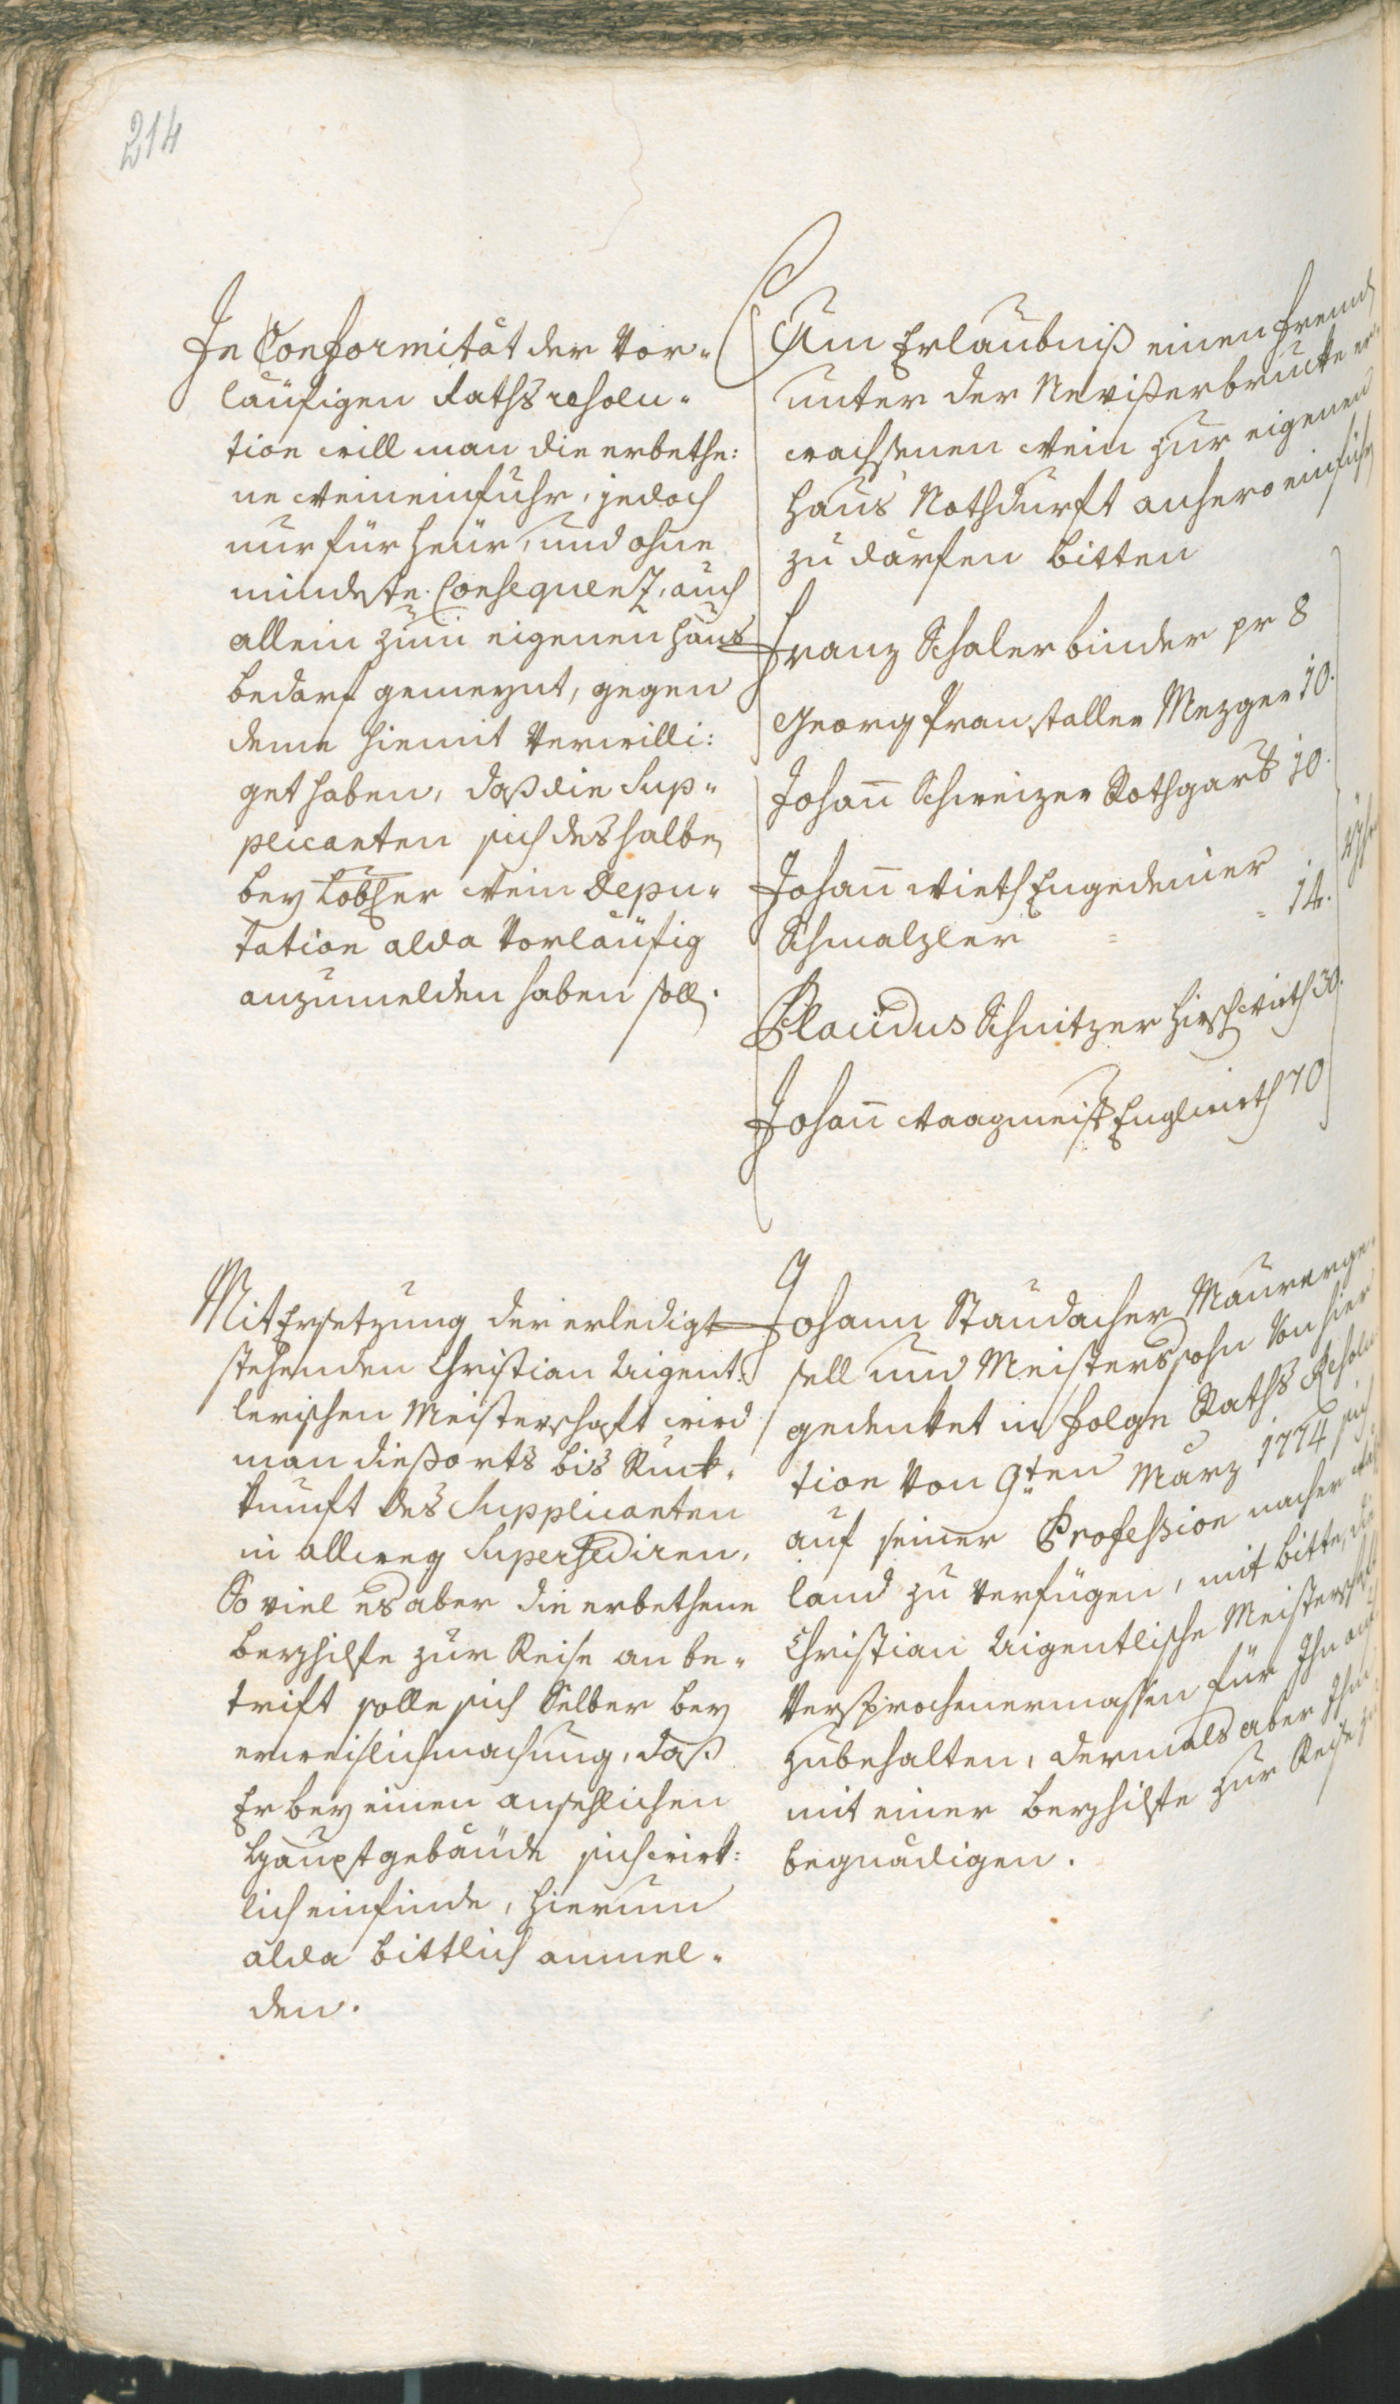 214
In Conformität der Vor-
läufigen Rathsresolu-
tion will man die erbethe:
ne Weineinfuhr, jedoch
nur für heür, und ohne
mindeste Consequenz, auch
allein zum eigenen Haus
bedarf gemeynt, gegen
deme hiemit Verwilli:
get haben, daß die Sup-
plicanten sich deshalben
bey Lobl:er Wein Depu-
tation alda Vorläufig
anzumelden haben soll.
Um Erlaubniß einen fremd
unter der Nevißerbrucke er-
wachsenen Wein zur eigenen
Haus Nothdurft anhero einführen
zu därfen bitten
Franz Schaler binder pr 8
Georg Pranstaller Mezger 10.
Johann Schweizer Rothgarb 10.
Johann Wieth Engedeiner
Schmalzler = = 14.
Placidus Schnitzer Hirschwirth 30.
Johann Waagmeist Englwirth 70
Yhrn
Mit Ersetzung der erledigt
stehenden Christian Aigent-
lerischen Meisterschaft wird
man dießorts bis Ruck-
kunft des Supplicanten
in allweg Supersediren,
So viel es aber die erbethene
beyhilfe zur Reise anbe-
trift solle sich Selber bey
erweislichmachung, daß
Er bey einen ansehlichen
Hauptgebäude sich wirk:
lich einfinde, hierum
alda bittlich anmel-
den.
Johann Staudacher Maurerge-
sell und Meisterssohn Von hier
gedenket in folge Raths Resolu-
tion Von 9ten Marz 1774 sich
auf seiner Profession nacher
land zu verfügen, mit bitte, die
Christian Aigentlische Meisterschaft
Versprochenermassen für Ihn auf
zubehalten, dermals aber Ihm
mit einer beyhilfe zur Reise zu
begnädigen.